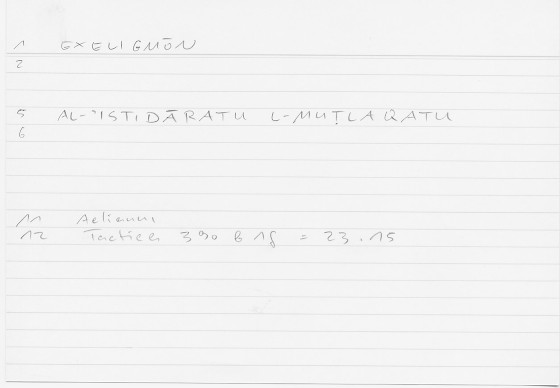 1 EXELIGMŌN
2
5 AL-ʾISTIDĀRATU L-MUṬLAQATU
6
11 Aelianus
12 Tactica 390 B 18 = 23.15